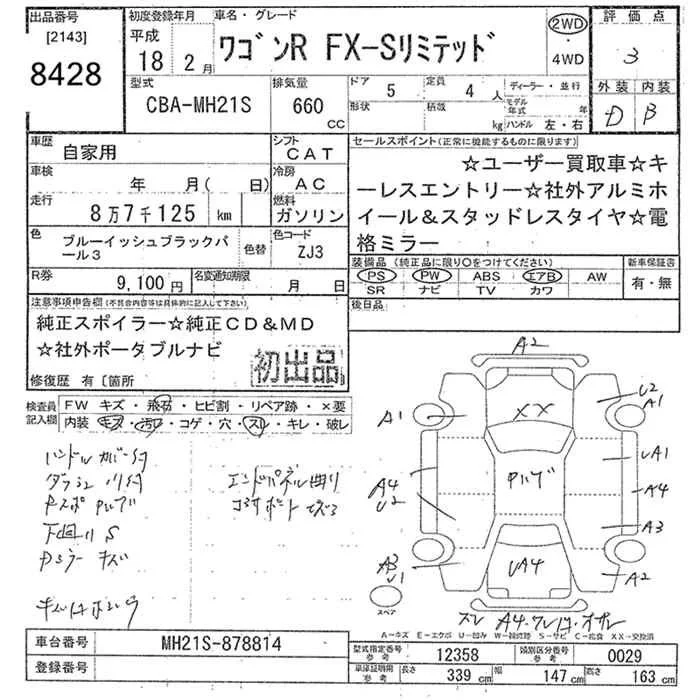 出品番号
[2143]
8428
初度登録年月
平成
18 2月
車名・グレード
ワゴンR FX-Sリミテッド
2WD
・
4WD
評価点
3
外装 内装
D B
型式
CBA-MH21S
排気量
660
CC
ドア
5
定員
4 人
形状
積載
kg
ディーラー・並行
モデル年式 年
ハンドル 左・右
車歴
自家用
シフト
CAT
車検
年 月( 日)
冷房
AC
走行
8万7千125 km
燃料
ガソリン
色
ブルーイッシュブラックパール3
色替
色コード
ZJ3
R券
9,100円
名変通知期限
月 日
セールスポイント(正常に機能するものに限ります)
☆ユーザー買取車☆キ
ーレスエントリー☆社外アルミホ
イール&スタッドレスタイヤ☆電
格ミラー
装備品(純正品に限り○をつけてください)
PS PW ABS エアB AW
SR ナビ TV カワ
新車保証書
有・無
後日品
注意事項申告欄(不具合内容等は具体的に記入して下さい)
純正スポイラー☆純正CD&MD
☆社外ポータブルナビ
初出品
修復歴 有〔箇所
検査員記入欄
FW キズ・飛石・ヒビ割・リペア跡・×要
内装 キズ・汚れ・コゲ・穴・スレ・キレ・破レ
ハンドルカバー付
下廻りS
Pミラーキズ
エンドパネル曲り
A2
U2
A1
A1
XX
UA1
A4
U2
A4
A3
A3
U1
UA4
A2
スペア
A-キズ E-エクボ U-凹み W-補修跡 S-サビ C-腐食 XX-交換済
車台番号
MH21S-878814
登録番号
型式指定番号
参考
12358
類別区分番号
参考
0029
車庫証明用
参考
長さ 339 cm
幅 147 cm
高さ 163 cm